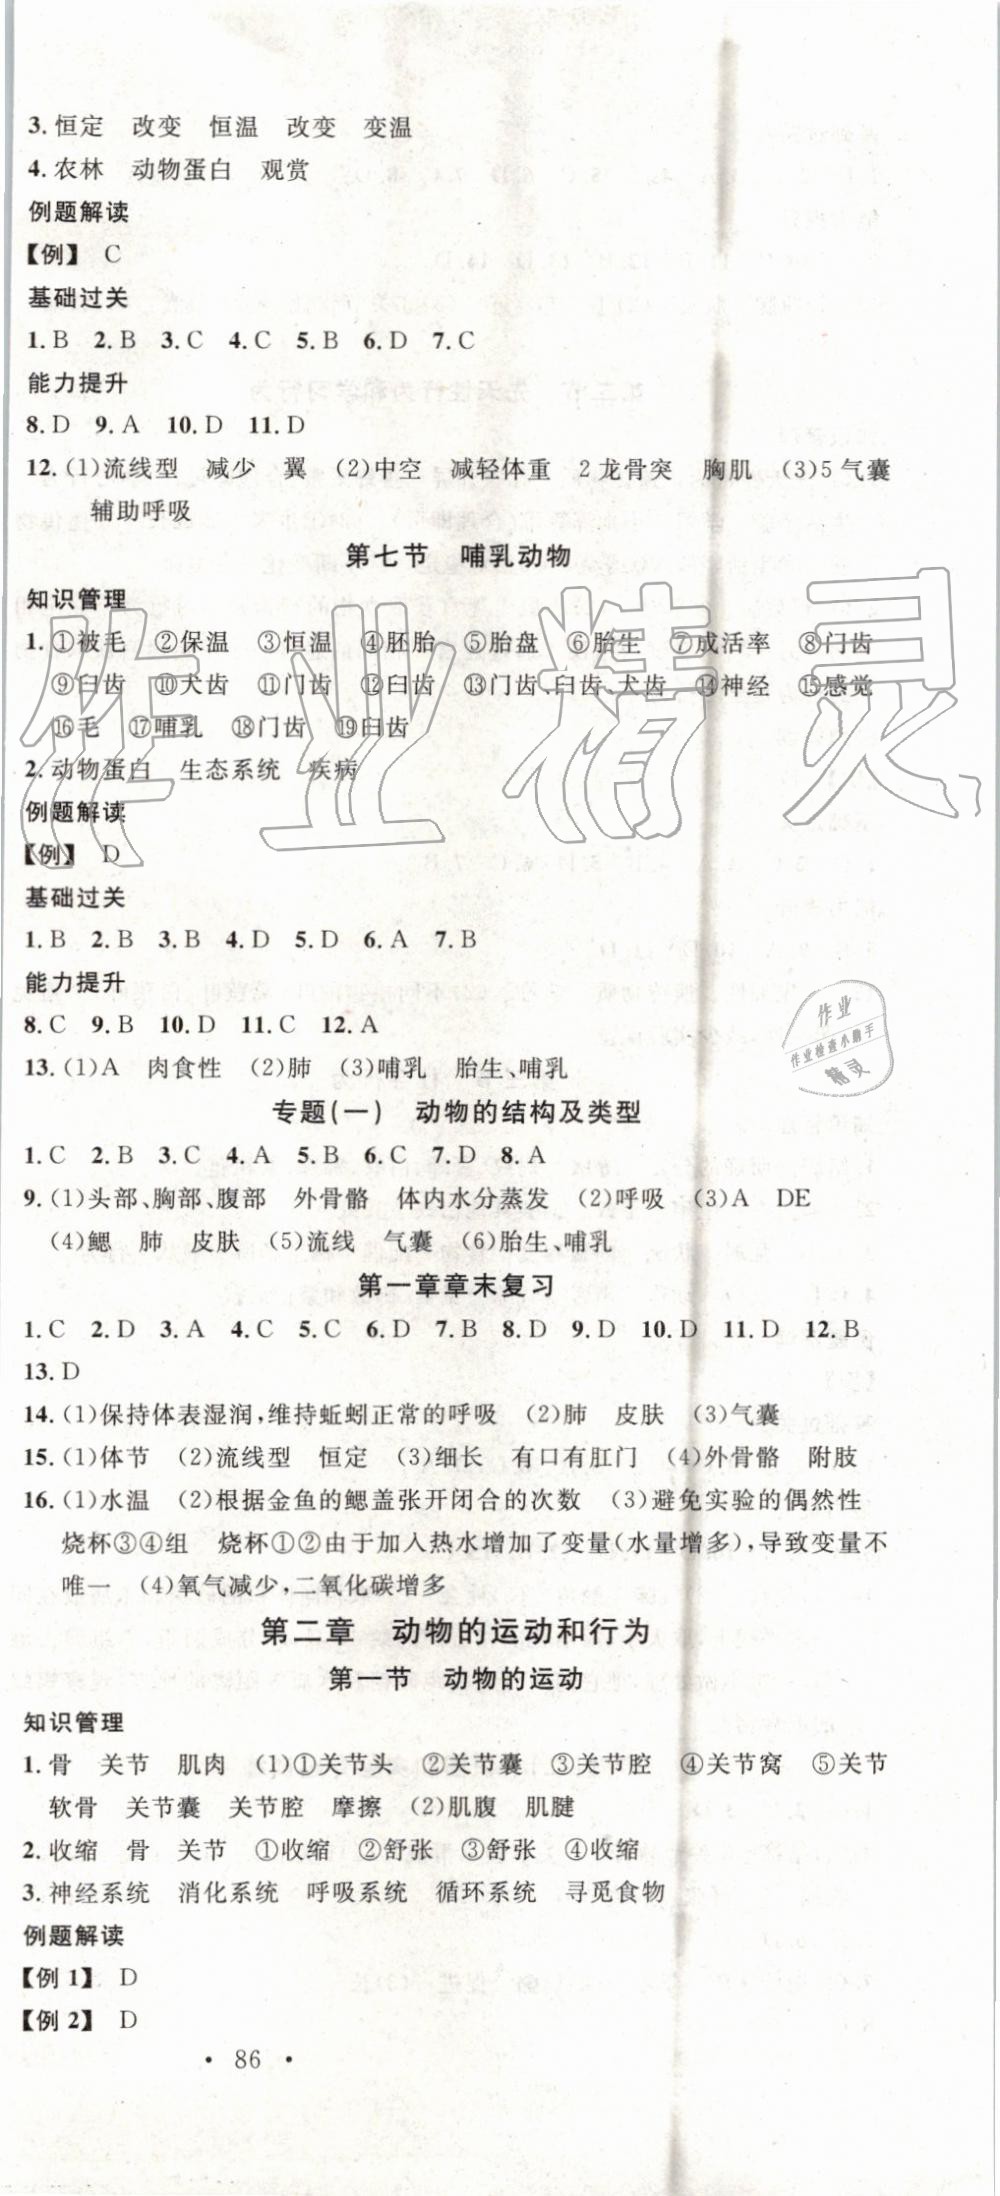 3.恒定　改变　恒温　改变　变温
4.农林　动物蛋白　观赏
例题解读
【例】　C
基础过关
1.B　2.B　3.C　4.C　5.B　6.D　7.C
能力提升
8.D　9.A　10.D　11.D
12.(1)流线型　减少　翼　(2)中空　减轻体重　2龙骨突　胸肌　(3)5气囊
辅助呼吸
第七节　哺乳动物
知识管理
1.①被毛　②保温　③恒温　④胚胎　⑤胎盘　⑥胎生　⑦成活率　⑧门齿
⑨臼齿　⑩犬齿　⑪门齿　⑫臼齿　⑬门齿、臼齿、犬齿　⑭神经　⑮感觉
⑯毛　⑰哺乳　⑱门齿　⑲臼齿
2.动物蛋白　生态系统　疾病
例题解读
【例】　D
基础过关
1.B　2.B　3.B　4.D　5.D　6.A　7.B
能力提升
8.C　9.B　10.D　11.C　12.A
13.(1)A　肉食性　(2)肺　(3)哺乳　胎生、哺乳
专题(一)　动物的结构及类型
1.C　2.B　3.C　4.A　5.B　6.C　7.D　8.A
9.(1)头部、胸部、腹部　外骨骼　体内水分蒸发　(2)呼吸　(3)A　DE
(4)鳃　肺　皮肤　(5)流线　气囊　(6)胎生、哺乳
第一章章末复习
1.C　2.D　3.A　4.C　5.C　6.D　7.B　8.D　9.D　10.D　11.D　12.B
13.D
14.(1)保持体表湿润,维持蚯蚓正常的呼吸　(2)肺　皮肤　(3)气囊
15.(1)体节　(2)流线型　恒定　(3)细长　有口有肛门　(4)外骨骼　附肢
16.(1)水温　(2)根据金鱼的鳃盖张开闭合的次数　(3)避免实验的偶然性
烧杯③④组　烧杯②由于加入热水增加了变量(水量增多),导致变量不
唯一　(4)氧气减少,二氧化碳增多
第二章　动物的运动和行为
第一节　动物的运动
知识管理
1.骨　关节　肌肉　(1)①关节头　②关节囊　③关节腔　④关节窝　⑤关节
软骨　关节囊　关节腔　摩擦　(2)肌腹　肌腱
2.收缩　骨　关节　①收缩　②舒张　③舒张　④收缩
3.神经系统　消化系统　呼吸系统　循环系统　寻觅食物
例题解读
【例1】　D
【例2】　D
· 86 ·
作业精灵
作业
作业检查小助手
精灵